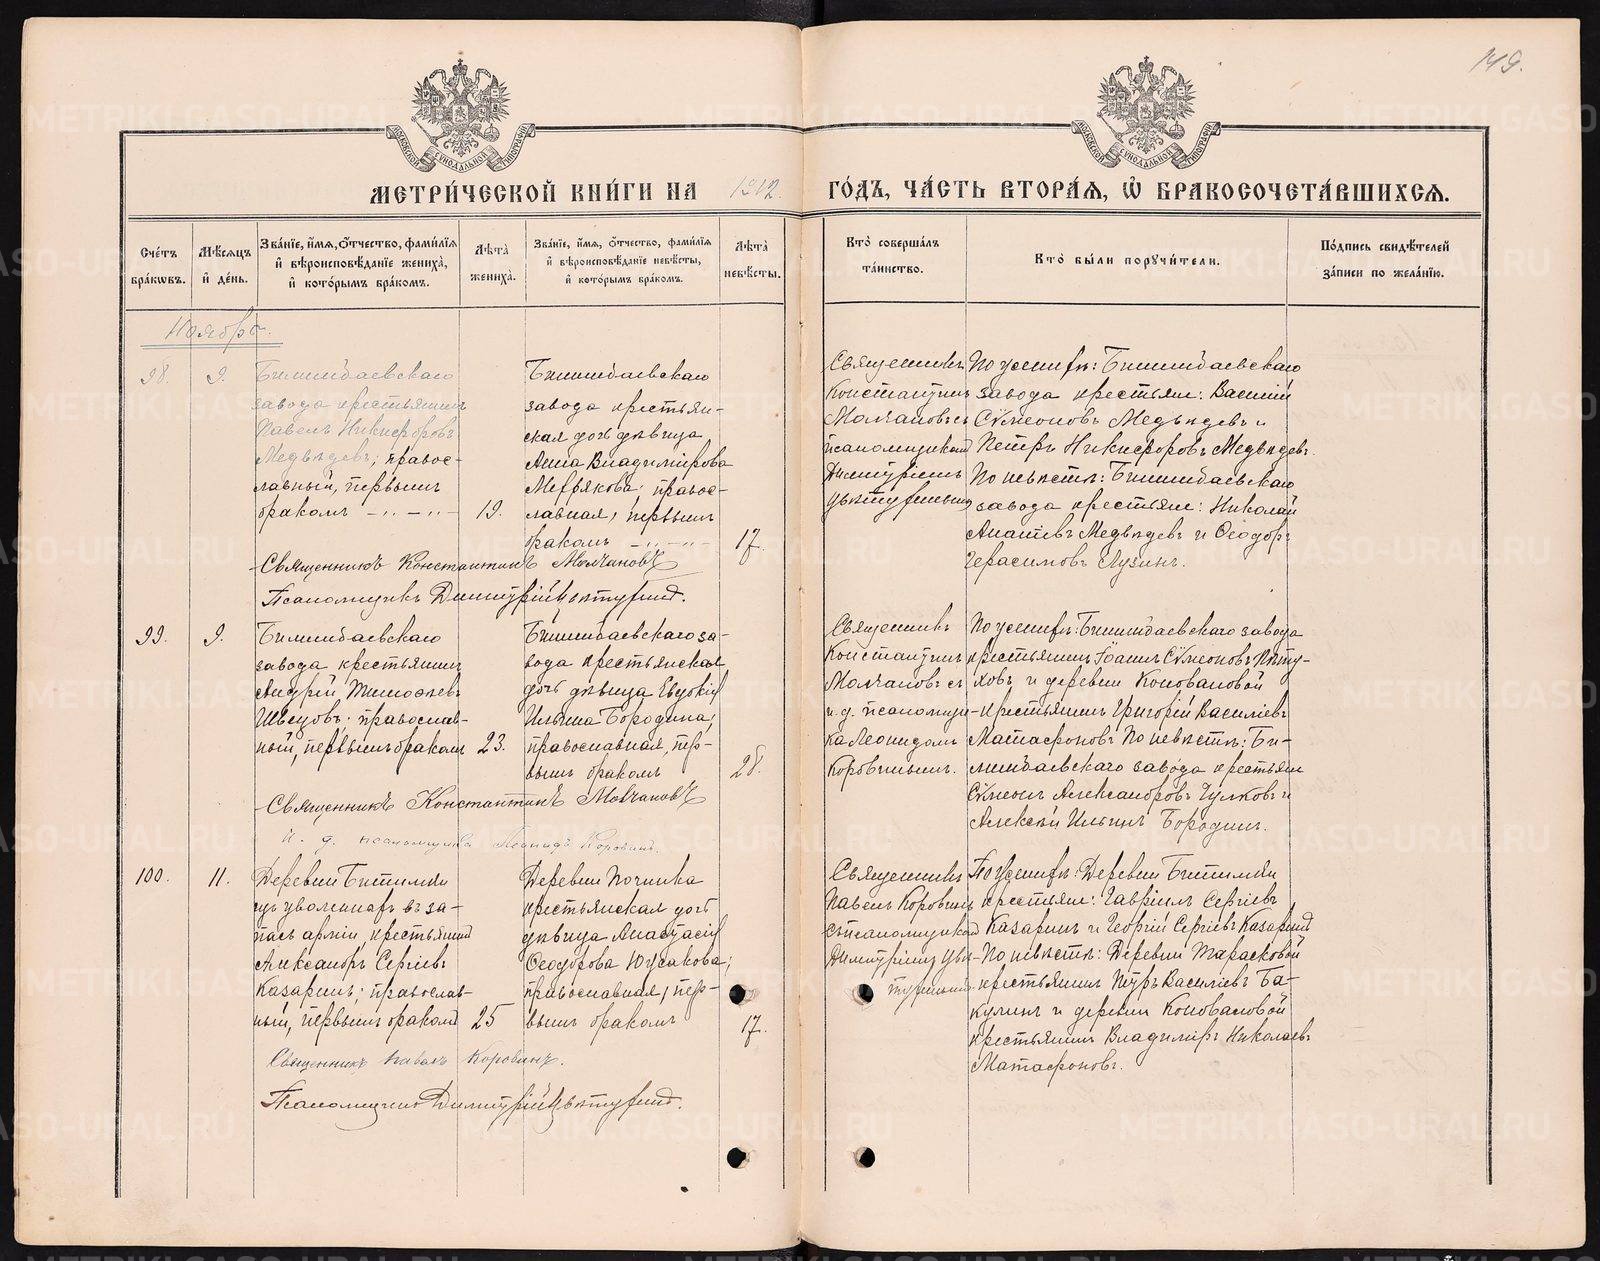 149.
МЕТРИ́ЧЕСКОЙ КНИ́ГИ НА 1912 ГО́ДЪ, ЧА́СТЬ ВТОРА́Я, Ѡ҆ БРАКОСОЧЕТА́ВШИХСЯ.
Сче́тъ бра́кѡвъ.
Мѣ́сяцъ и҆ де́нь.
Зва́нїе, и҆́мя, ѻ҆́тчество, фамилїя и҆ вѣроисповѣ́данїе жениха̀, и҆ кото́рымъ бра́комъ.
Лѣта̀ жениха̀.
Зва́нїе, и҆́мя, ѻ҆́тчество, фами́лїя и҆ вѣроисповѣ́данїе невѣ́сты, и҆ кото́рымъ бра́комъ.
Лѣта̀ невѣ́сты.
Кто̀ соверша́лъ та́инство.
Кто̀ бы́ли порꙋчи́тели.
По́дпись свидѣ́телей за́писи по жела́нїю.
Ноябрь.
98.
9.
Билимбаевскаго
завода крестьянинъ
Павелъ Никифоровъ
Медвѣдевъ; правос-
лавный, первымъ
бракомъ
19.
Билимбаевскаго
завода крестьян-
ская дочь дѣвица
Анна Владимірова
правос-
лавная, первымъ
бракомъ
17.
Священникъ
Константинъ
Молчановъ съ
псаломщикомъ
Димитріемъ
По женихѣ: Билимбаевскаго
завода крестьяне: Василій
Сѵмеоновъ Медвѣдевъ и
Петръ Никифоровъ Медвѣдевъ
По невѣстѣ: Билимбаевскаго
завода крестьяне: Николай
Медвѣдевъ и Ѳеодоръ
Герасимовъ Лузинъ.
Священникъ Константинъ Молчановъ
Псаломщикъ Димитрій
99.
9.
Билимбаевскаго
завода крестьянинъ
Андрей Тимоѳеевъ
Швецовъ; православ-
ный, первымъ бракомъ
23.
Билимбаевскаго за-
вода крестьянская
дочь дѣвица Евдокія
Ильина Бородина;
православная, пер-
вымъ бракомъ
28.
Священникъ
Константинъ
Молчановъ съ
и. д. псаломщи-
ка Леонидомъ
Коровинымъ.
По женихѣ: Билимбаевскаго завода
крестьянинъ Іоаннъ Сѵмеоновъ Пѣту-
ховъ и деревни Коноваловой
крестьянинъ Григорій Василіевъ
Матафоновъ По невѣстѣ: Би-
лимбаевскаго завода крестьяне
Сѵмеонъ Александровъ Гулковъ и
Алексѣй Ильинъ Бородинъ.
Священникъ Константинъ Молчановъ
И. д. псаломщика Леонидъ Коровинъ.
100.
11.
Деревни Битимки
уволенный въ за-
пасъ арміи, крестьянинъ
Александръ Сергіевъ
Казаринъ; православ-
ный, первымъ бракомъ
25
Деревни Починка
крестьянская дочь
дѣвица Анастасія
Ѳеодорова Юсакова;
православная, пер-
вымъ бракомъ
17.
Священникъ
Павелъ Коровинъ
съ псаломщикомъ
Димитріемъ
По женихѣ: Деревни Битимки
крестьяне: Гавріилъ Сергіевъ
Казаринъ и Георгій Сергіевъ Казаринъ
По невѣстѣ: Деревни Тарасковой
крестьянинъ Петръ Василіевъ Ба-
кулинъ и деревни Коноваловой
крестьянинъ Владиміръ Николаевъ
Матафоновъ.
Священникъ Павелъ Коровинъ.
Псаломщикъ Димитрій